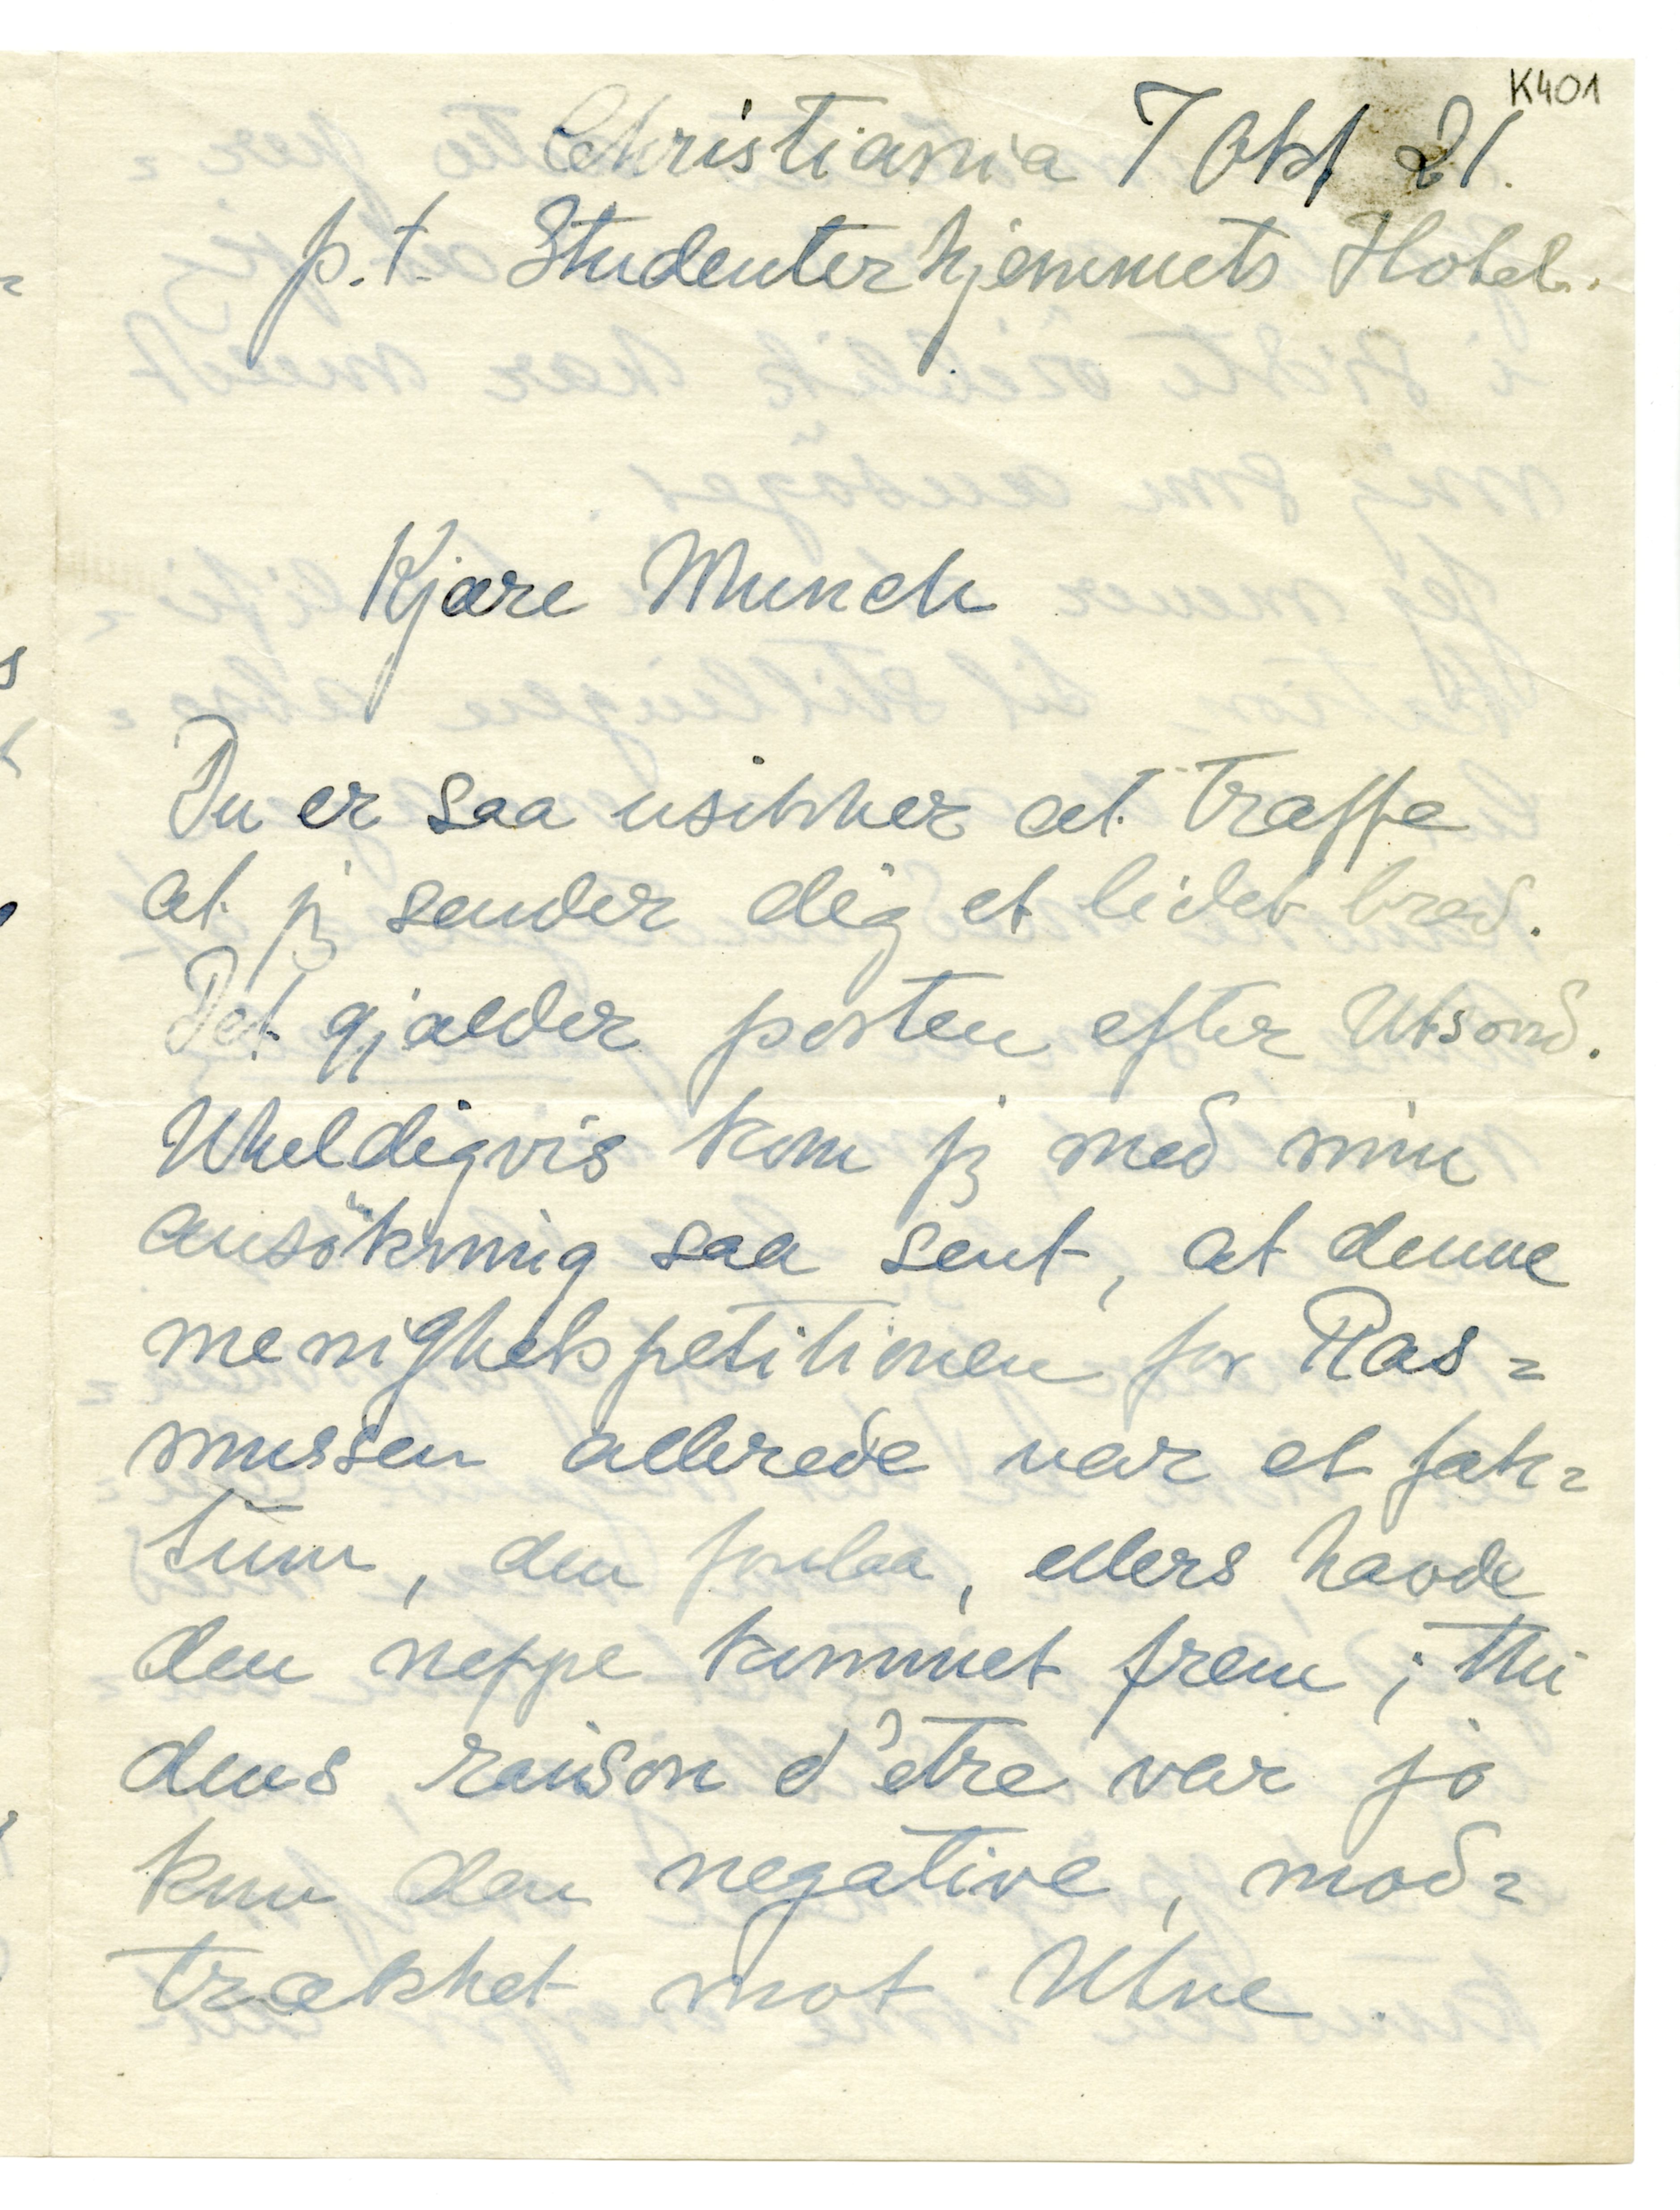 K401
Christiania 7 Okt 21.
p.t. Studenterhjemmets Hotel.
Kjære Munch
Du er saa usikker at træffe
at jeg sender dig et lidet brev.
Det gjælder posten efter Utsond.
Uheldigvis kom jeg med min
ansökning saa sent, at denne
menighetspetitionen for Ras=
mussen allerede var et fak=
tum, den forelaa, ellers havde
den neppe kommet frem; thi
dens raison d'etre var jo
kun den negative, mod=
trækket mot Utne.